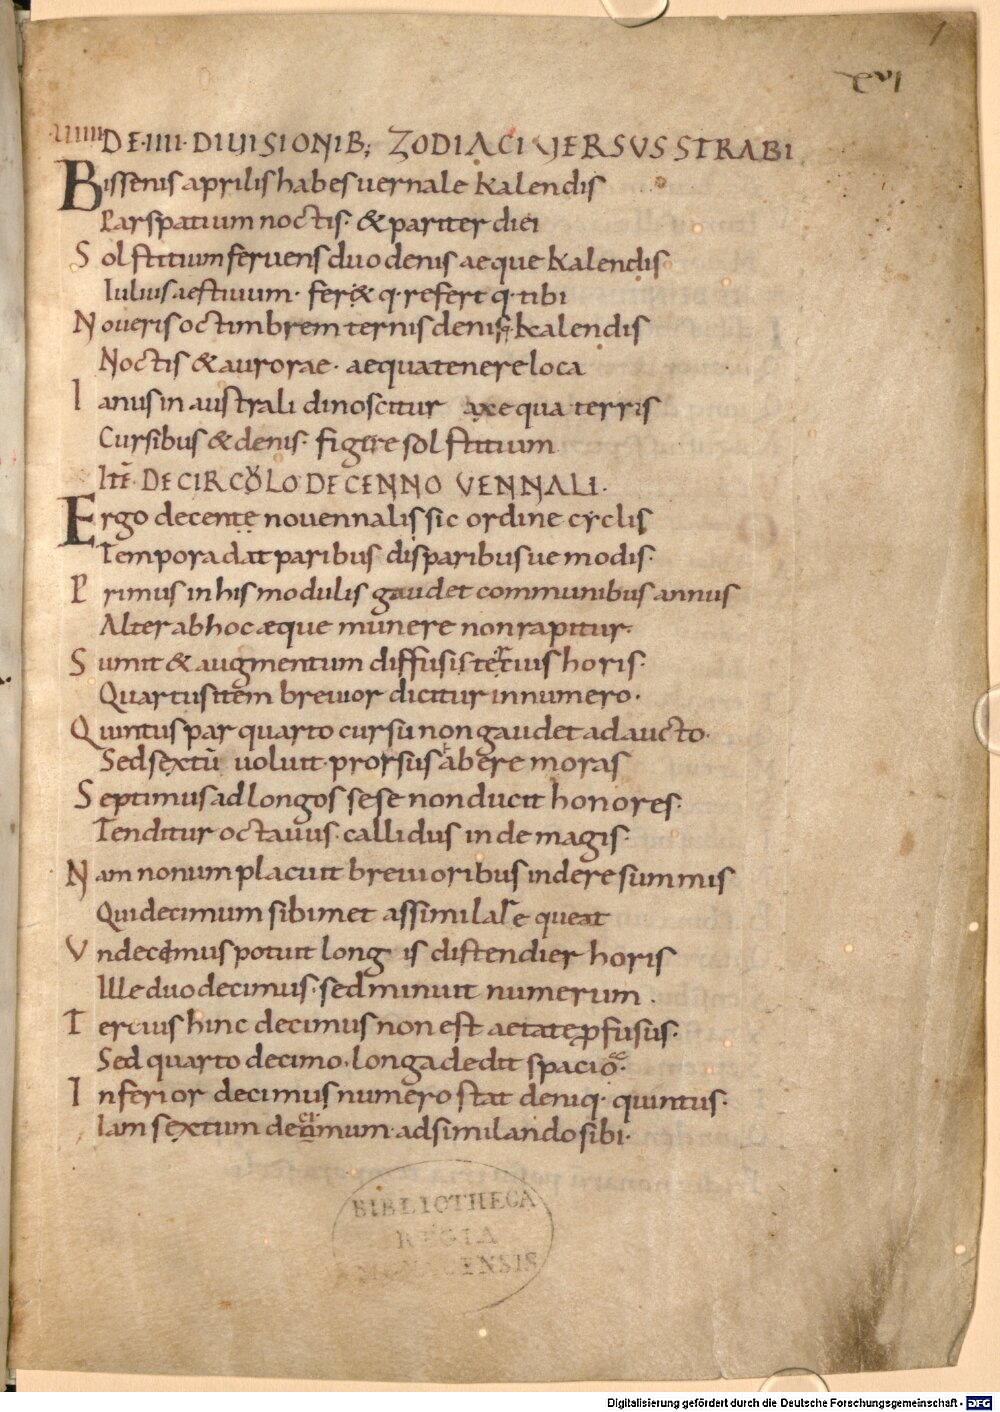 1
xvi
IIIIII DE·IIII·DIUISIONIB; ZODIACI VERSUS STRABI
Bissenis aprilis habes uernale kalendis
Par spatium noctis· & pariter diei
Solstitium feruens duodenis aeque kalendis
Iulius aestiuum· ferix q· refert q· tibi
Noueris octimbrem ternis denis kalendis
Noctis & aurorae· aequa tenere loca
Ianus in australi dinoscitur axe qua terris
Cursibus & denis· figere solstitium
Ite DE CIRCOLO DECENNOVENNALI·
Ergo decente nouennalis sic ordine cyclis
Tempora dat paribus disparibusue modis·
Primus in his modulis gaudet communibus annus
Alter ab hoc æque munere non rapitur·
Sumit & augmentum diffusis tertius horis·
Quartus item breuior dicitur in numero·
Quintus par quarto cursu non gaudet adaucto·
Sed sextū uoluit prorsus abere moras
Septimus ad longos sese non ducit honores·
Tenditur octauus· callidus inde magis·
Nam nonum placuit breuioribus indere summis
Qui decimum sibimet assimilare queat
Vndecimus potuit longis distendier horis
Ille duodecimus· sed minuit numerum·
Tercius hinc decimus non est aetate ꝓfusus·
Sed quarto decimo· longa dedit spacio·
Inferior decimus numero stat deniq· quintus·
Iam sextum decimum adsimilando sibi·
BIBLIOTHECA
REGIA
MONACENSIS
Digitalisierung gefördert durch die Deutsche Forschungsgemeinschaft - DFG